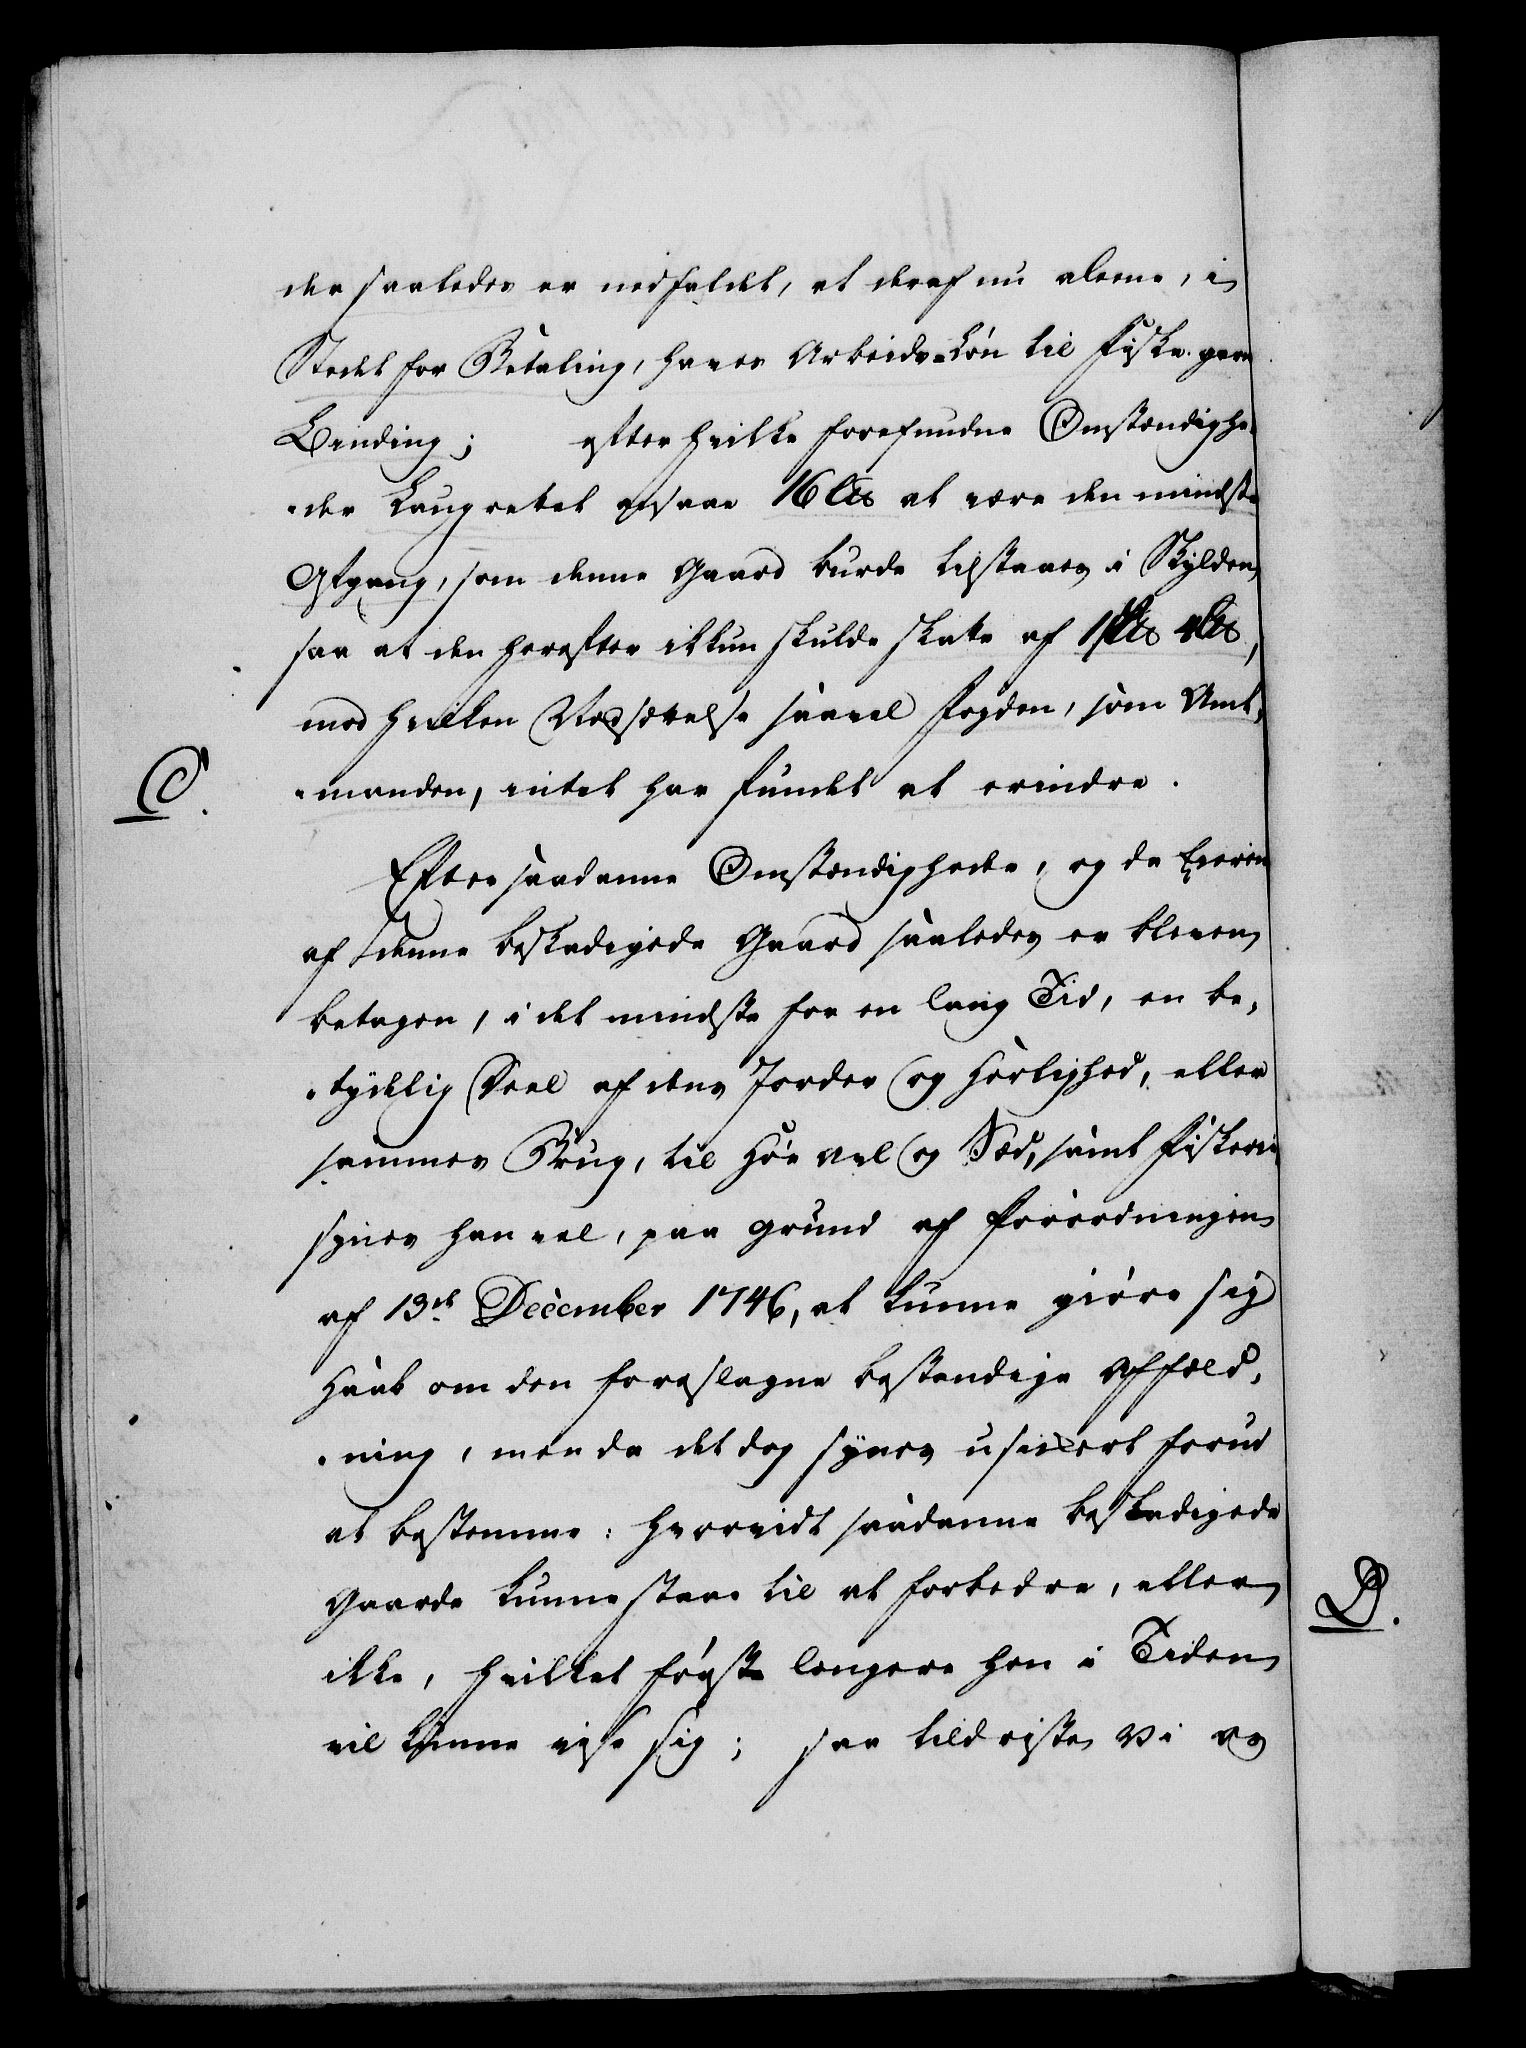 der saaledes er nedfaldet, at deraf nu alene, i
Stedet for Betaling, haves Arbeids-Løn til Fiske-garn
Binding; efter hvilke forefundne Omstændighe-
-der Laugrettet ansaae 16 at være den mindste
Afgang, som denne Gaard burde tilstaaes i Skylden,
saa at den herefter ikkun skulde skatte af 1 4,
mod hvilken Nedsættelse saavel Fogden, som Amt-
-manden, intet har fundet at erindre.
C.
Efter saadanne Omstændigheder, og da Eieren
af denne beskadigede Gaard saaledes er bleven
betagen, i det mindste for en lang Tid, en be-
-tydelig Deel af dens Jorder og Herlighed, eller
sammes Brug, til Høe avl og Sæd, samt Fiskerie
synes han vel, paa Grund af Forordningen
af 13de December 1746, at kunne giøre sig
Haab om den foreslagne bestandige Affæld-
-ning, men da det dog synes usikkert forud
at bestemme: hvorvidt saadanne beskadigede
Gaarde kunne staae til at forbedre, eller
D.
ikke, hvilket først længere hen i Tiden
vil kunne vise sig; saa tildriste Vi os